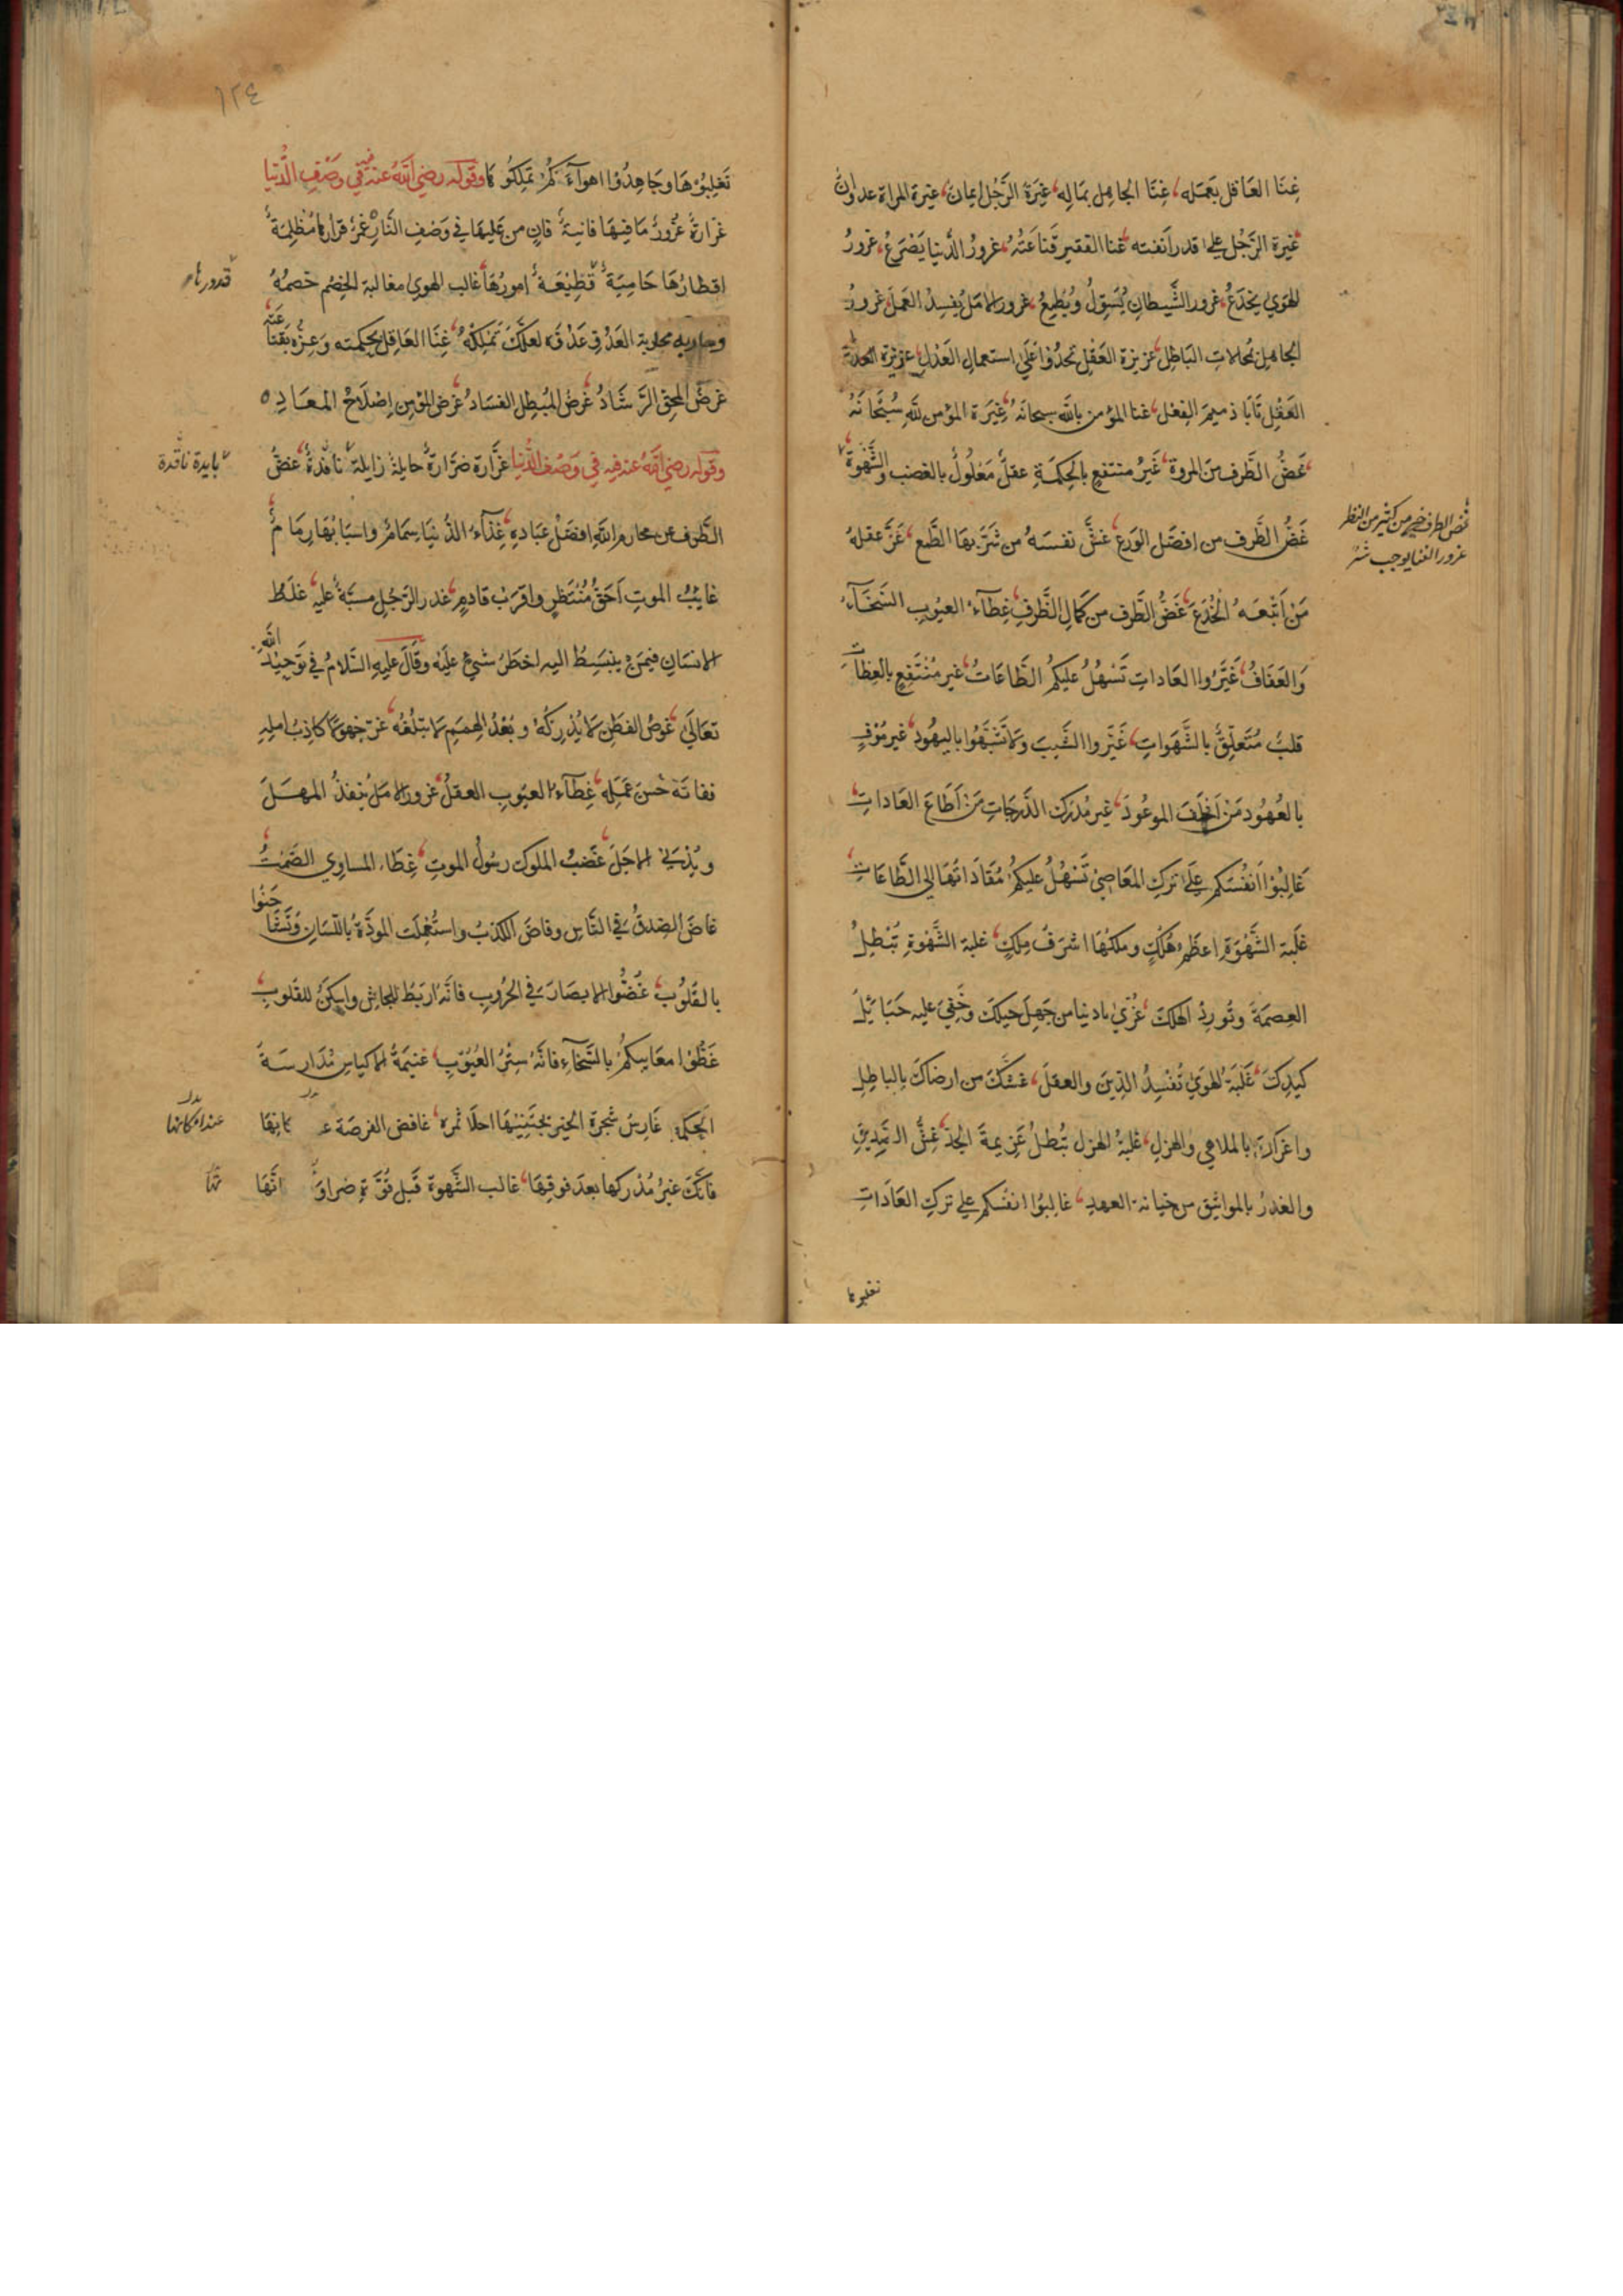 غِنَا العَاقل بعَمله، غِنَا الجاهِل بمَالِه، غيرَةُ الرَّجُل ايمانٌ، غيرة المراة عدوانٌ
غيرة الرَّجُل علي قدر اَنفته، غنا الفقير قَناعَتُهُ، غرورُ الدُّنيا يَصْرَعُ، غرورُ
الهَوي يخدَعُ، غرور الشَّيطانِ يُسَوِّلُ ويُطمِعُ، غرور الامَل يُفسِدُ العَمَل، غرورُ
الجاهِل بمُحالاتِ البَاطِل، غريزة العَقْل تحدُوا عَلَي استعمالِ العَدْل، غريزة
العَقْل تَابَا ذميمَ الفِعْل، غنا المؤمن باللَّه سبحانَهُ، غيرَة المؤمن للَّهِ سُبْحَانَهُ
غَضُّ الطَّرف مِنَ المروة، غَيرُ منتفعٍ بالحِكمَةِ عقلٌ مَغلُولٌ بالغضب والشَّهْوَة
غَضُّ الطَّرف من افضَل الوَرَع، غشَّ نفسَهُ من شَرَّبهَا الطَّمع، غَرَّ عقلهُ
مَنْ اَتْبَعَهُ الخُدَعَ، غَضُّ الطَّرف من كَمَالِ الظَّرفِ، غِطَآء العيُوبِ السَّخَآءُ
وَالعَفَافُ، غَيَّرُوا العَاداتِ تَسْهُلُ عليكُم الطَّاعَاتُ، غير مُنْتَفِعٍ بالعِظَاتِ
قلبٌ مُتَعلِّقٌ بالشَّهَواتِ، غَيَّروا الشَّيبَ ولا تَشَبَّهُوا باليهُودِ، غير مُوْفٍ
بالعُهُود مَنْ اَخلَفَ الموعُودَ، غير مُدْرِكِ الدَّرجَاتِ مَنْ اَطَاعَ العَاداتِ
غَالِبُوْا اَنفُسَكُم عَلَي تركِ المَعَاصِيْ تَسْهُلُ عليكُمْ مُقَادَاتهَا الي الطَّاعَاتِ
غلَبَة الشَّهْوَةِ اعظَم هُلْكٍ وملكُهَا اشرَفُ مِلكٍ، غلبَة الشَّهْوَةِ تُبْطِلُ
العِصمَةَ وتُورِدُ الهلكَ، غُرّي يادنيا من جَهِلَ حِيلَكَ وخَفِيَ عليه حَبَايِلُ
كيدِكَ، غَلبَة الهَوَيٰ تُفْسِدُ الدّينَ والعقلَ، غَشَّكَ من ارضَاكَ بِالباطِلِ
واغرَاكَ بالملاهِي والهزلِ، غَلَبَةُ الهزلِ تُبْطِلُ عَزِيمةَ الجدِّ،
والغدرُ بالمواثيق من خيانة العهدِ، غالِبُوا انفسكم علي تركِ العَادَاتِ
غض الطرف خير من كثير من النظر
غرور الغنا يوجب شر
تَغلِبُوْهَا وجَاهِدُوْا اهوآءَكُمْ تملِكُوْهَا وقوله رضي اللَّه عنه في وَصْفِ الدُّنيا
غرَّارةٌ غُرُورٌ مَا فيهَا فانيةٌ فانٍ من عَلَيهَا في وَصْفِ النَّارِ غَمْرٌ قرارُهَا مُظلِمَةٌ
اقطارُهَا حَامِيَةٌ فَظِيْعَةٌ امورُهَا، غالب الهوي مغالبة الخِصْم خصمَهُ
وحاربه محاربة العَدُوِّ عَدُوَّهُ لعلَّكَ تَمْلِكُهُ، غِنَا العَاقِل بحِكمته وَعِزُّه بقنَاعَتِهِ
غرضُ المحِقِّ الرَّشَادُ، غَرضُ المُبطِل الفسَادُ، غَرَض المُؤمِن اِصْلَاحُ المعَادِ ٥
قدورها
وقوله رضي اللَّهُ عنه في وَصْف الدُّنيا غرَّارة ضرَّارةٌ حايلةٌ زايلةٌ نافدةٌ، غضُّ
بايدة نافدة
الطَّرف عن محارم اللَّهِ افضَل عبَادةٍ، غِذَآءُ الدُّنيَا سِمَامٌ واسبَابُهَا رِمَامٌ،
غايبُ الموتِ اَحَقُّ مُنْتَظَرٍ واقرَبُ قادِمٍ، غدر الرّجُلِ مسَبَّةٌ عليهِ، غلَطُ
الانسَانِ فيمَنْ ينبَسِطُ اليه اخطَرُ شيءٍ عَلَيْه وقَالَ عليه السَّلامُ في تَوْحِيْد اللَّهِ
تعَالَي، غَوصُ الفِطَن لا يُدْرِكُهُ وبُعْدُ الهِمَم لا يَبْلُغُه، غرَّ جَهوْلًا كاذِبُ املِهِ
ففاتَهُ حُسْنُ عَمَلِه، غِطَآءُ العيُوبِ العقلُ، غرور الامَل يُنفِدُ المهَلَ
ويُدْنِي الاجَل، غَضبُ الملوك رسُولُ الموتِ، غِطَاء المساوِي الصَّمْتُ،
غَاضَ الصِّدقُ في النَّاس وفاضَ الكذبُ واستُعْمِلَت الموَدَّةُ باللّسَانِ وتَشَاحَنُوا
بالقلُوبِ، غُضُّوا الابصَارَ في الحُرُوبِ فانَّهُ اَربَطُ للجَاش واسكَنُ للقلوبِ،
غَطُّوْا معَايبكُمْ بالسَّخَآءِ فانَّهُ سِتْرُ العُيُوْبِ، غنيمَةُ الاكياسِ مُدَارسَةُ
الحِكمَة، غَارِسُ شجرة الخيرِ يجتَنِيْهَا احلَا ثمرةٍ، غافص الفرصَة
عند امكانها
فانَّكَ غيرُ مُدْركها بعدَ فوتِهَا، غالب الشَّهوة قبل قوَّة ضراوتها
تها